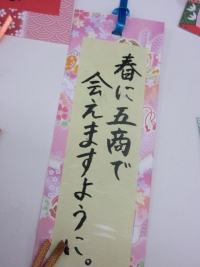 春に五商で
会えますように。